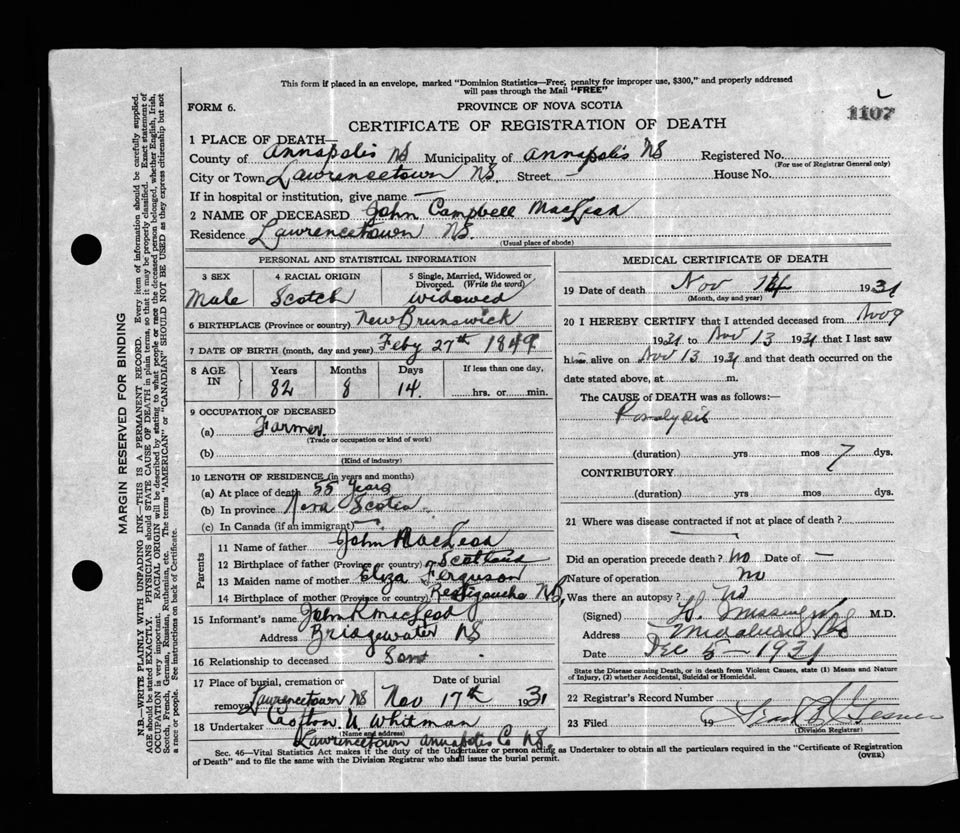 This form if placed in an envelope, marked "Dominion Statistics—Free, penalty for improper use, $300," and properly addressed
will pass through the Mail "FREE"
FORM 6.
PROVINCE OF NOVA SCOTIA
1107
CERTIFICATE OF REGISTRATION OF DEATH
1 PLACE OF DEATH—
County of Annapolis NS Municipality of Annapolis NS Registered No.
(For use of Registrar General only)
City or Town Lawrencetown NS. Street — House No.
If in hospital or institution, give name —
2 NAME OF DECEASED John Campbell MacLeod
Residence Lawrencetown NS.
(Usual place of abode)
PERSONAL AND STATISTICAL INFORMATION
3 SEX 4 RACIAL ORIGIN 5 Single, Married, Widowed or Divorced. (Write the word)
Male Scotch Widowed
6 BIRTHPLACE (Province or country) New Brunswick
7 DATE OF BIRTH (month, day and year) Feby 27th 1849
8 AGE IN Years Months Days If less than one day,
82 8 14 hrs. or min.
9 OCCUPATION OF DECEASED
(a) Farmer
(Trade or occupation or kind of work)
(b)
(Kind of industry)
10 LENGTH OF RESIDENCE (in years and months)
(a) At place of death 55 Years
(b) In province Nova Scotia
(c) In Canada (if an immigrant) —
Parents
11 Name of father John MacLeod
12 Birthplace of father (Province or country) Scotland
13 Maiden name of mother Eliza Ferguson
14 Birthplace of mother (Province or country) Restigouche NB.
15 Informant's name John K MacLeod
Address Bridgewater NS
16 Relationship to deceased Son
17 Place of burial, cremation or removal Date of burial
Lawrencetown NS Nov 17th 1931
18 Undertaker Crofton U. Whitman
(Name and address)
Lawrencetown Annapolis Co NS.
MEDICAL CERTIFICATE OF DEATH
19 Date of death Nov 14 1931
(Month, day and year)
20 I HEREBY CERTIFY that I attended deceased from Nov 9
1931 to Nov 13 1931 that I last saw
him alive on Nov 13 1931 and that death occurred on the
date stated above, at m.
The CAUSE of DEATH was as follows:—
Paralysis
(duration) yrs mos 7 dys.
CONTRIBUTORY
(duration) yrs mos dys.
21 Where was disease contracted if not at place of death?
—
Did an operation precede death? No Date of —
Nature of operation No
Was there an autopsy? No
(Signed) M.D.
Address
Date Dec 5 - 1931
State the Disease causing Death, or in death from Violent Causes, state (1) Means and Nature
of Injury, (2) whether Accidental, Suicidal or Homicidal.
22 Registrar's Record Number
23 Filed 19
(Division Registrar)
Sec. 46—Vital Statistics Act makes it the duty of the Undertaker or person acting as Undertaker to obtain all the particulars required in the "Certificate of Registration
of Death" and to file the same with the Division Registrar who shall issue the burial permit.
(OVER)
MARGIN RESERVED FOR BINDING
N.B.—WRITE PLAINLY WITH UNFADING INK—THIS IS A PERMANENT RECORD. Every item of information should be carefully supplied.
AGE should be stated EXACTLY. PHYSICIANS should STATE CAUSE OF DEATH in plain terms, so that it may be properly classified. Exact statement of
OCCUPATION is very important. RACIAL ORIGIN will be described by stating to what people or race the deceased person belonged, whether English, Irish,
Scotch, French, German, Russian, Ruthenian, etc. The terms "AMERICAN" or "CANADIAN" SHOULD NOT BE USED as they express citizenship but not
a race or people. See instructions on back of Certificate.